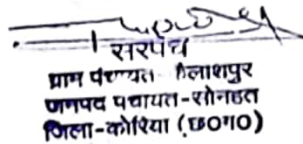 सरपंच
ग्राम पंचायत- कैलाशपुर
जनपद पंचायत-सोनहत
जिला-कोरिया (छ०ग०)